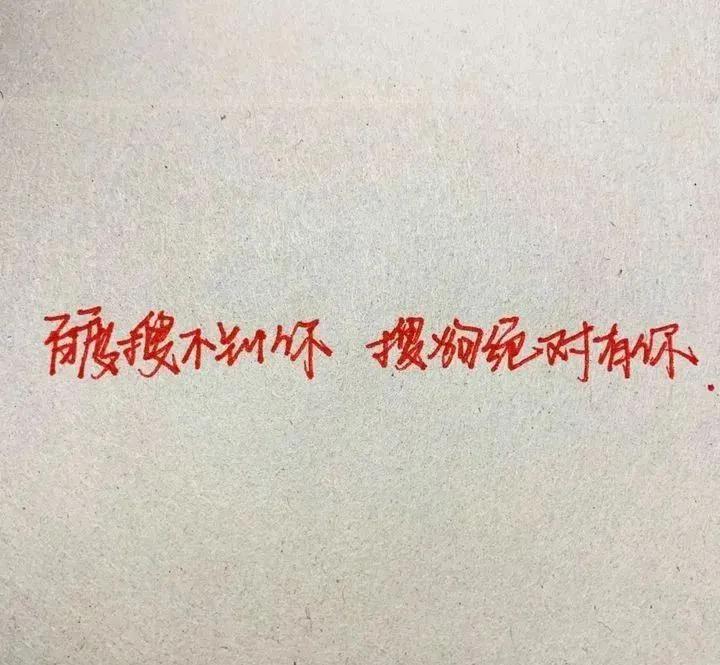 百度搜不到你 搜狗绝对有你.